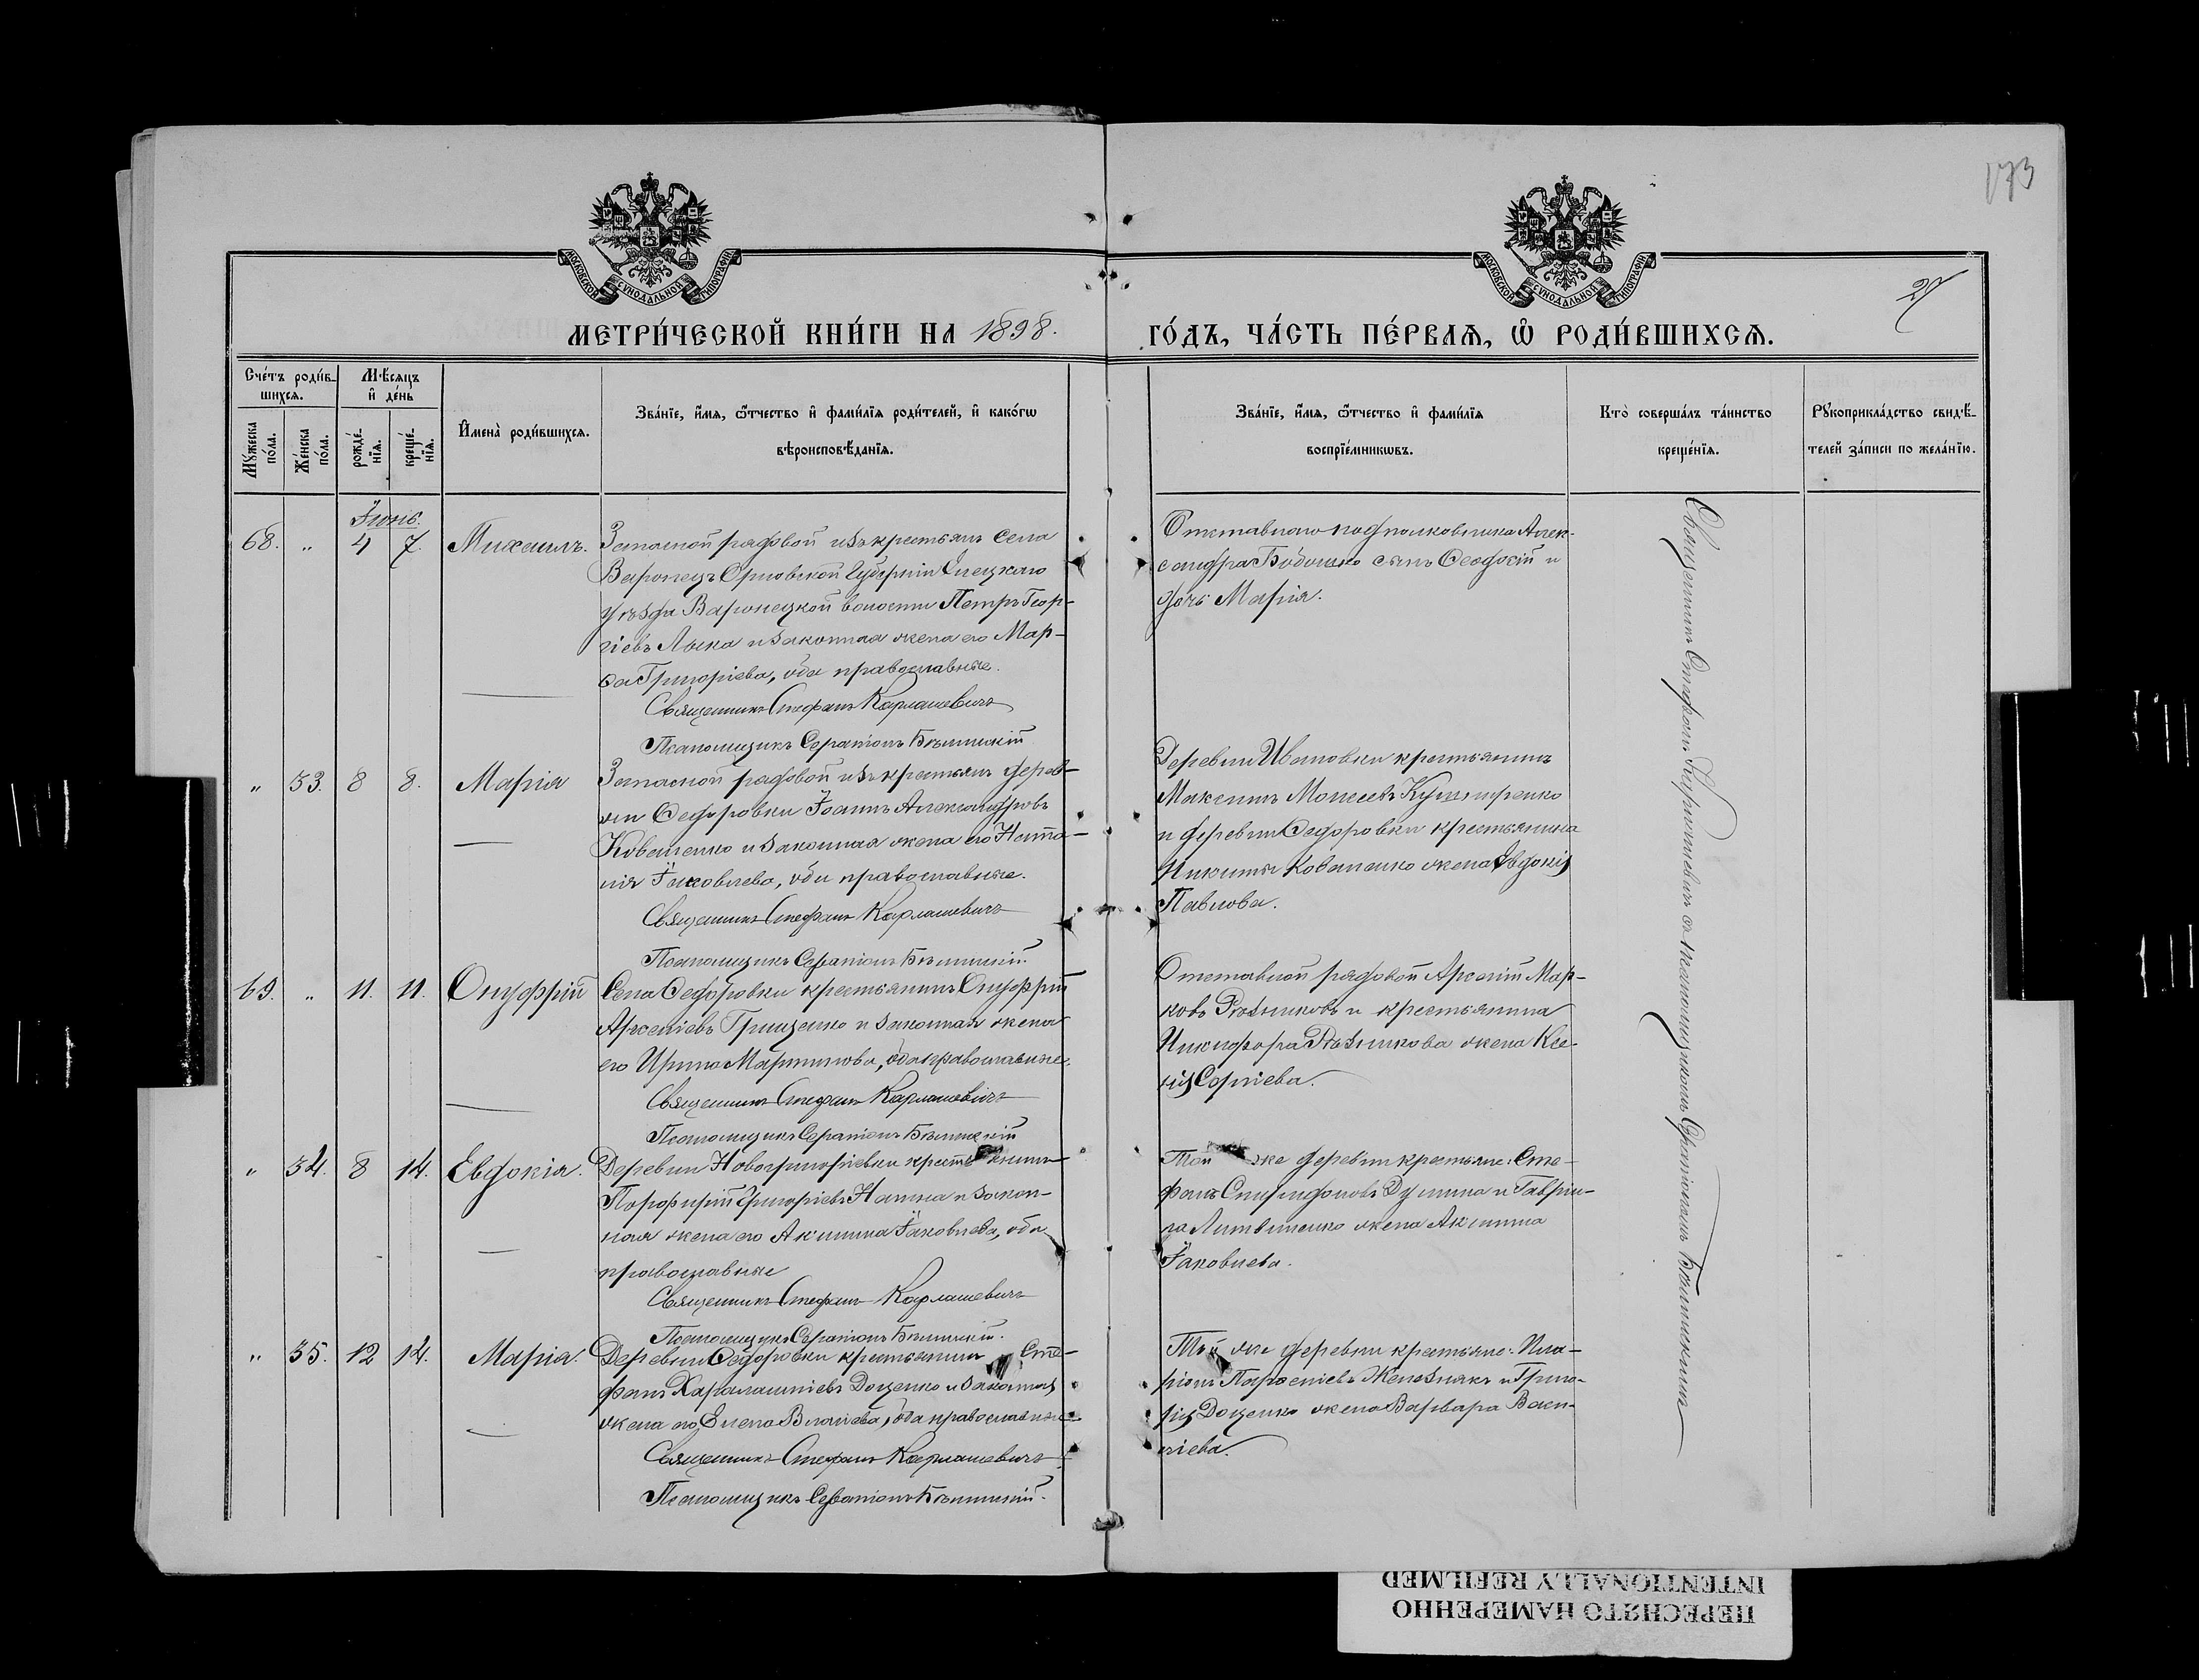 173
МОСКОВСКОЙ СѴНОДАЛЬНОЙ ТИПОГРАФІИ
МОСКОВСКОЙ СѴНОДАЛЬНОЙ ТИПОГРАФІИ
МЕТРИ́ЧЕСКОЙ КНИ́ГИ НА 1898.
ГО́ДЪ, ЧА́СТЬ ПЕ́РВАЯ, Ѽ РОДИ́ВШИХСЯ.
Сче́тъ роди́в-
шихся.
Мѣ́сяцъ
и҆ де́нь
Мꙋ́жеска по́ла.
Же́нска по́ла.
рожде́-
нїя.
креще́-
нїя.
И҆мена̀ роди́вшихся.
Зва́нїе, и҆́мя, ѻ҆́тчество и҆ фами́лїя роди́телей, и҆ како́гѡ
вѣроисповѣ́данїя.
Зва́нїе, и҆́мя, ѻ҆́тчество и҆ фами́лїя
воспрїе́мникѡвъ.
Кто̀ соверша́лъ та́инство
креще́нїя.
Рꙋкоприкла́дство свидѣ́-
телей за́писи по жела́нїю.
Іюнь.
68. " 4 7. Михаилъ.
Запасной рядовой изъ крестьянъ села
Воронецъ Орловской Губерніи Елецкаго
уѣзда Воронецкой волости Петръ Геор-
гіевъ Лыка и законная жена его Мар-
ѳа Григоріева, оба православные.
Священникъ Стефанъ Карпашевичъ
Псаломщикъ Серапіонъ
Отставнаго подполковника Алек-
сандра сынъ Ѳеодосій и
дочь Марія.
" 33. 8 8. Марія
Запасной рядовой изъ крестьянъ дерев-
ни Ѳедоровки Іоаннъ Александровъ
Коваленко и законная жена его Ната-
лія Іаковлева, оба православные.
Священникъ Стефанъ Карпашевичъ
Псаломщикъ Серапіонъ
Деревни Ивановки крестьянинъ
Максимъ Моисеевъ
и деревни Ѳедоровки крестьянина
Никиты Коваленко жена Евдокія
Павлова.
69. " 11. 11. Онуфрій
Села Ѳедоровки крестьянинъ Онуфрій
Арсеніевъ Грищенко и законная жена
его Ирина Мартинова, оба православные.
Священникъ Стефанъ Карпашевичъ
Псаломщикъ Серапіонъ
Отставной рядовой Арсеній Мар-
ковъ Рѣзниковъ и крестьянина
Никифора Рѣзникова жена Ксе-
нія Сергіева.
" 34. 8 14. Евдокія.
Деревни Новогригоріевки крестьянинъ
Порфирій Григоріевъ и закон-
ная жена его Акилина Іаковлева, оба
православные
Священникъ Стефанъ Карпашевичъ
Псаломщикъ Серапіонъ
Той же деревни крестьяне: Сте-
фанъ Спиридоновъ и Гаврии-
ла Литвиненко жена Акилина
Іаковлева.
" 35. 12 14. Марія.
Деревни Ѳедоровки крестьянинъ Сте-
фанъ Харалампіевъ Доценко и законная
жена его Елена Власіева, оба православные
Священникъ Стефанъ Карпашевичъ
Псаломщикъ Серапіонъ
Той же деревни крестьяне: Ила-
ріонъ Парѳеніевъ Желѣзнякъ и Григо-
рія Доценко жена Варвара Васи-
ліева.
Священникъ Стефанъ Карпашевичъ съ псаломщикомъ Серапіономъ
ПЕРЕСНЯТО НАМЕРЕННО
INTENTIONALLY REFILMED